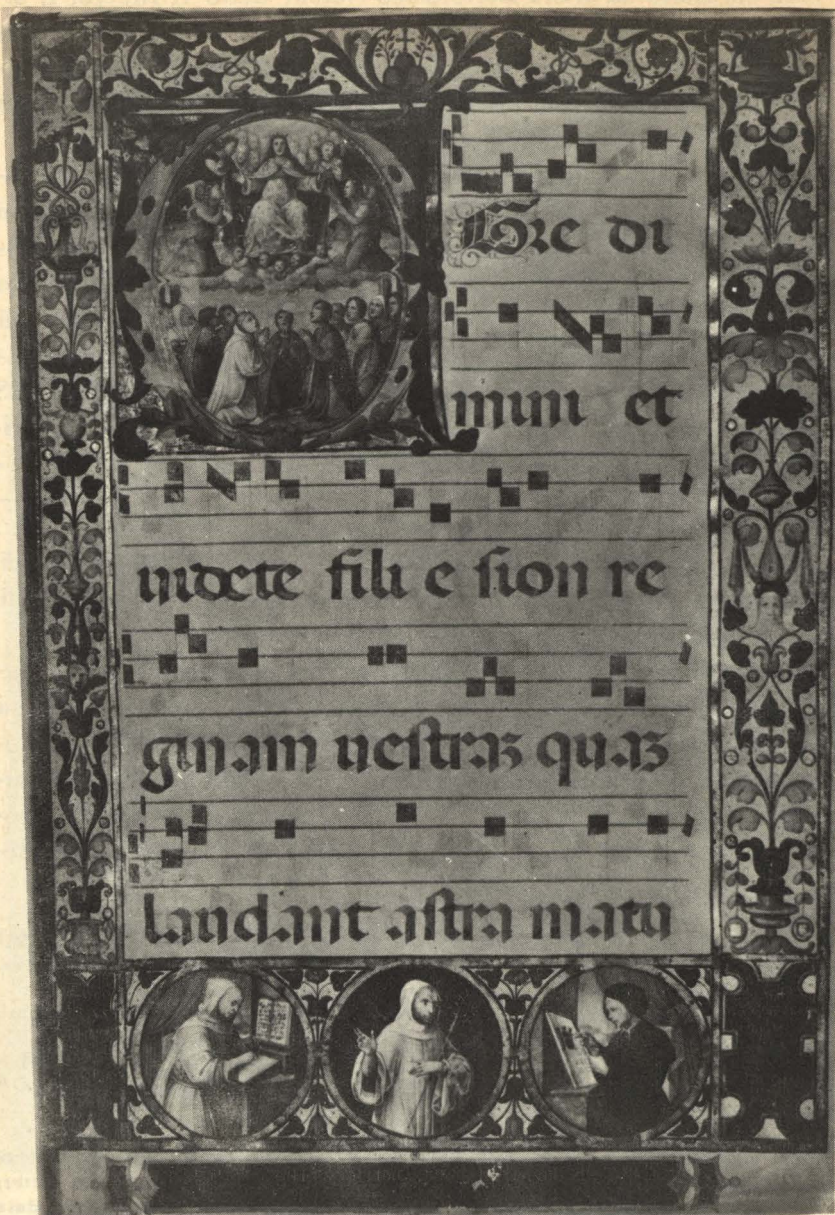 EGre di
mini et
uidete fili e sion re
ginam uestraz quaz
laudant astra matu